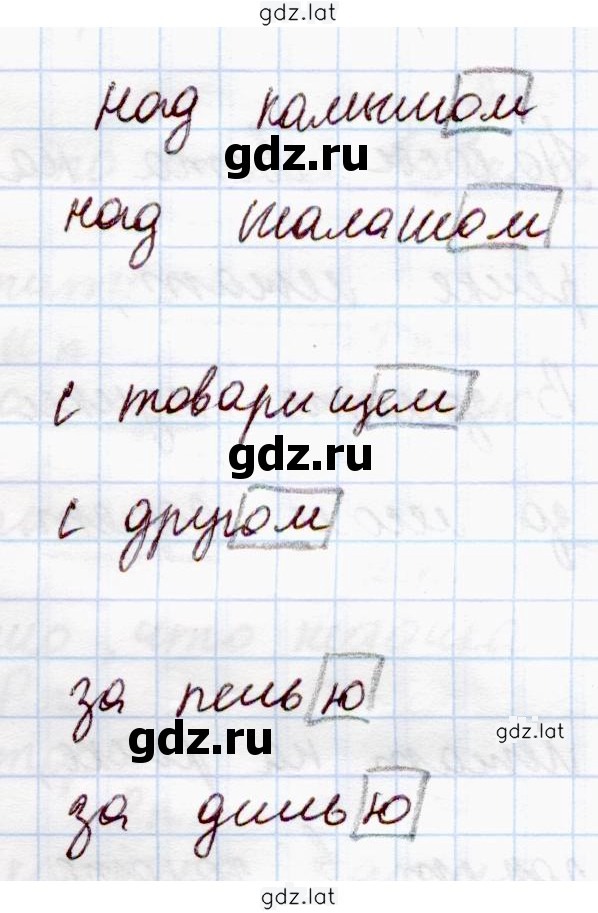 gdz.lat
над камышом
gdz.ru
над шалашом
с товарищем
gdz.ru
с другом
за
ю
gdz.lat
gdz.ru
за
ю
gdz.lat